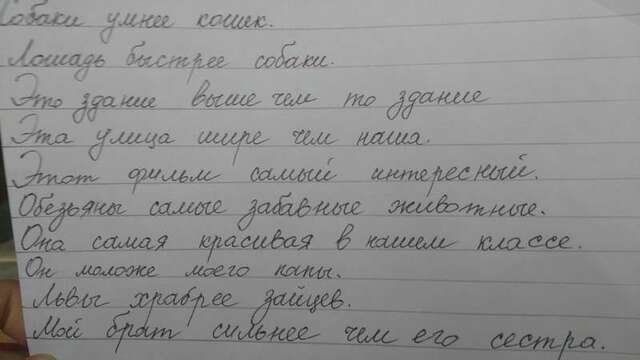 Собаки умнее кошек.
Лошадь быстрее собаки.
Это здание выше чем то здание
Эта улица шире чем наша.
Этот фильм самый интересный.
Обезьяны самые забавные животные.
Она самая красивая в нашем классе.
Он моложе моего папы.
Львы храбрее зайцев.
Мой брат сильнее чем его сестра.